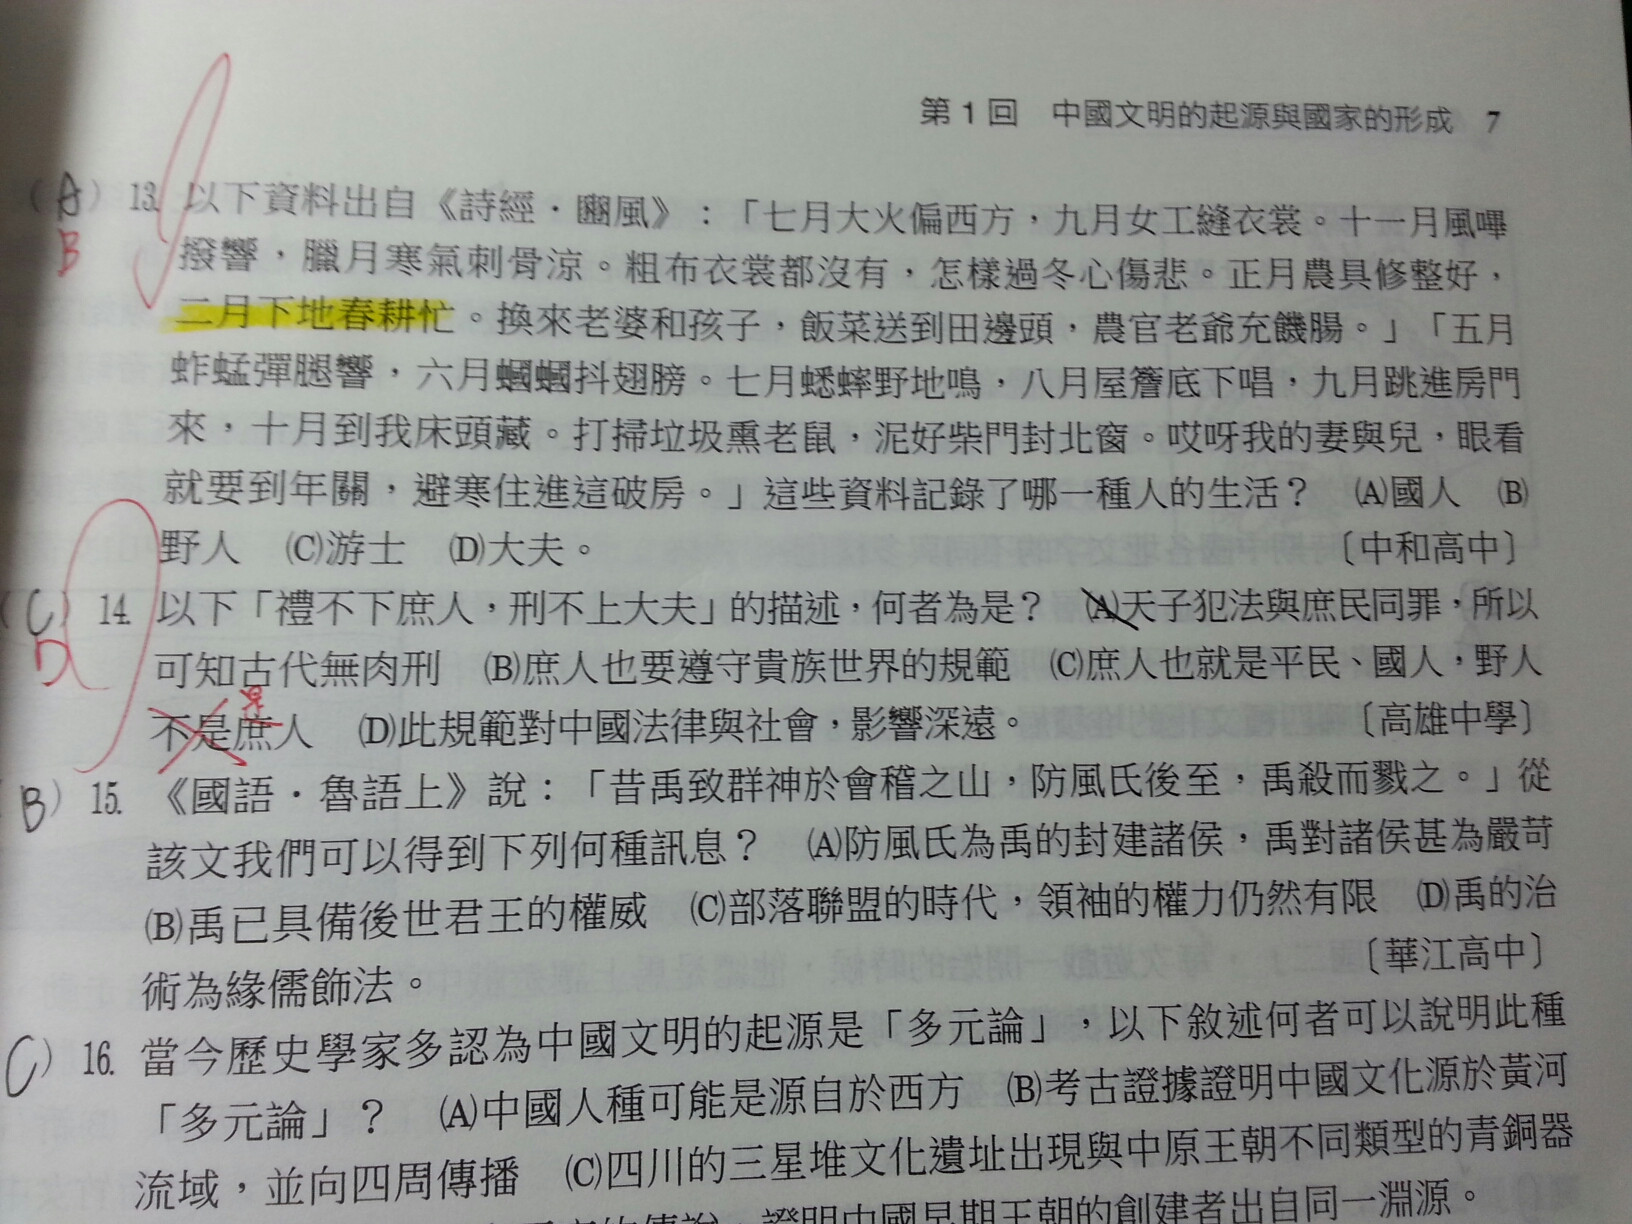 第1回 中國文明的起源與國家的形成 7
(A) 13. 以下資料出自《詩經·豳風》:「七月大火偏西方,九月女工縫衣裳。十一月風嗶
B 撥響,臘月寒氣刺骨涼。粗布衣裳都沒有,怎樣過冬心傷悲。正月農具修整好,
二月下地春耕忙。換來老婆和孩子,飯菜送到田邊頭,農官老爺充饑腸。」「五月
蚱蜢彈腿響,六月蟈蟈抖翅膀。七月蟋蟀野地鳴,八月屋簷底下唱,九月跳進房門
來,十月到我床頭藏。打掃垃圾熏老鼠,泥好柴門封北窗。哎呀我的妻與兒,眼看
就要到年關,避寒住進這破房。」這些資料記錄了哪一種人的生活? (A)國人 (B)
野人 (C)游士 (D)大夫。 〔中和高中〕
(C) 14. 以下「禮不下庶人,刑不上大夫」的描述,何者為是? (A)天子犯法與庶民同罪,所以
D 可知古代無肉刑 (B)庶人也要遵守貴族世界的規範 (C)庶人也就是平民、國人,野人
是
不是庶人 (D)此規範對中國法律與社會,影響深遠。 〔高雄中學〕
(B) 15. 《國語·魯語上》說:「昔禹致群神於會稽之山,防風氏後至,禹殺而戮之。」從
該文我們可以得到下列何種訊息? (A)防風氏為禹的封建諸侯,禹對諸侯甚為嚴苛
(B)禹已具備後世君王的權威 (C)部落聯盟的時代,領袖的權力仍然有限 (D)禹的治
術為緣儒飾法。 〔華江高中〕
C) 16. 當今歷史學家多認為中國文明的起源是「多元論」,以下敘述何者可以說明此種
「多元論」? (A)中國人種可能是源自於西方 (B)考古證據證明中國文化源於黃河
流域,並向四周傳播 (C)四川的三星堆文化遺址出現與中原王朝不同類型的青銅器
的傳說,證明中國早期王朝的創建者出自同一淵源。